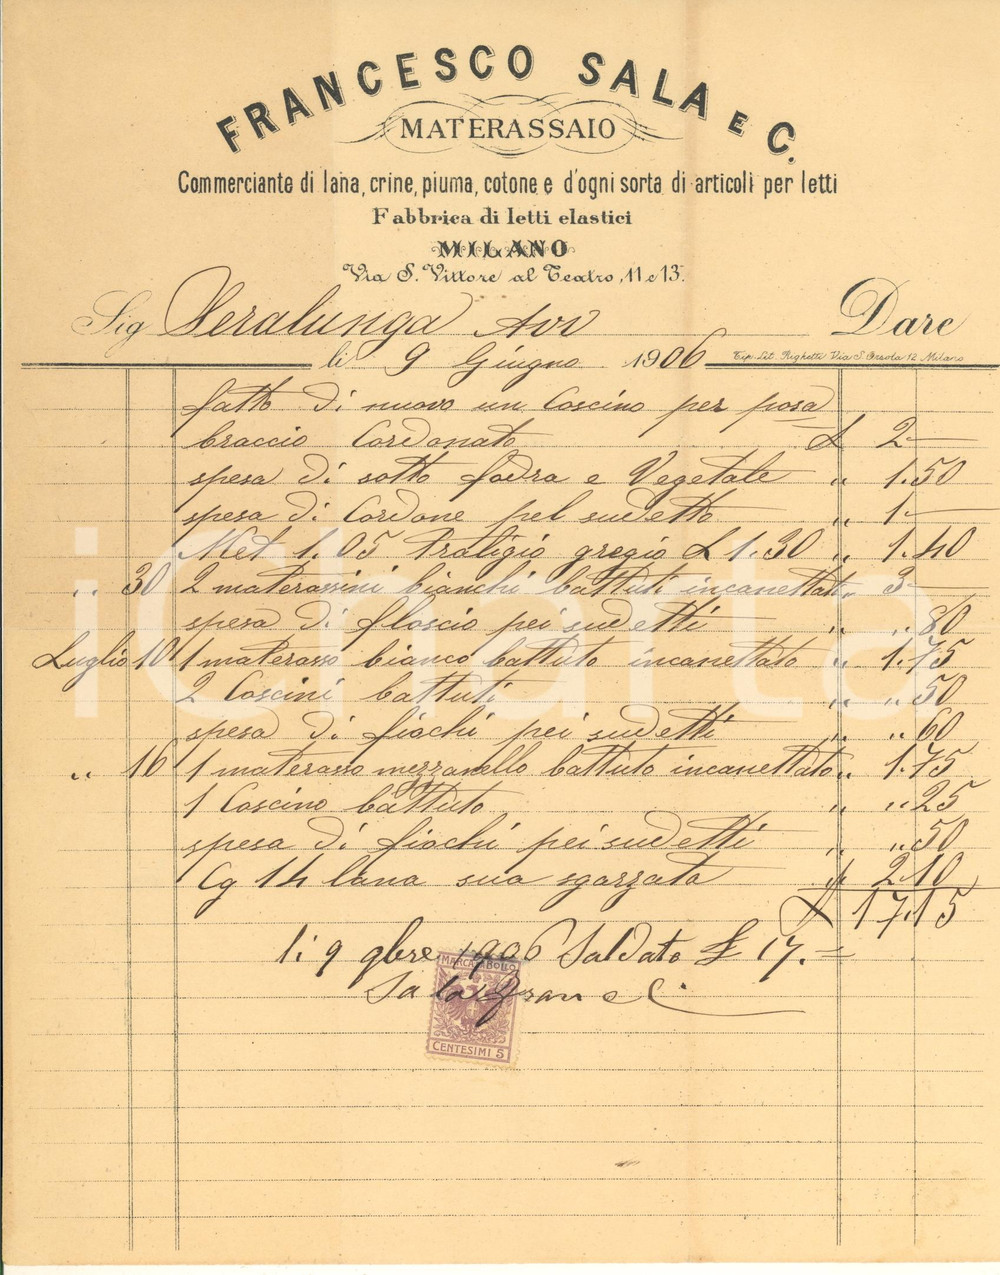 FRANCESCO SALA E C.
MATERASSAIO
Commerciante di lana, crine, piuma, cotone e d'ogni sorta di articoli per letti
Fabbrica di letti elastici
MILANO
Via S. Vittore al Teatro, 11 e 13.
Sig Veralunga Avv Dare
li 9 Giugno 1906
Tip. Lit. Righetti Via S. Orsola 12 Milano
fatto di nuovo un Coscino per posa
braccio Cordonato £ 2 —
spesa di sotto fodra e Vegetale " 1.50
spesa di Cordone pel sudetto " 1 —
Met 1.05 Traligio gregio £ 1.30 " 1.40
" 30 2 materassini bianchi battuti incanettati " 3 —
spesa di floscio pei sudetti " " 80
Luglio 10 1 materasso bianco battuto incanettato " 1.75
2 Coscini battuti " " 50
spesa di fiochi pei sudetti " " 60
" 16 1 materasso mezzanello battuto incanettato " 1.75
1 Coscino battuto " " 25
spesa di fiochi pei sudetti " " 50
Cg 14 lana sua sgarzata " 2.10
£ 17.15
li 9 9bre 1906 Saldato £ 17. =
Sala Fran e C.
MARCA DA BOLLO
CENTESIMI 5
iCharta